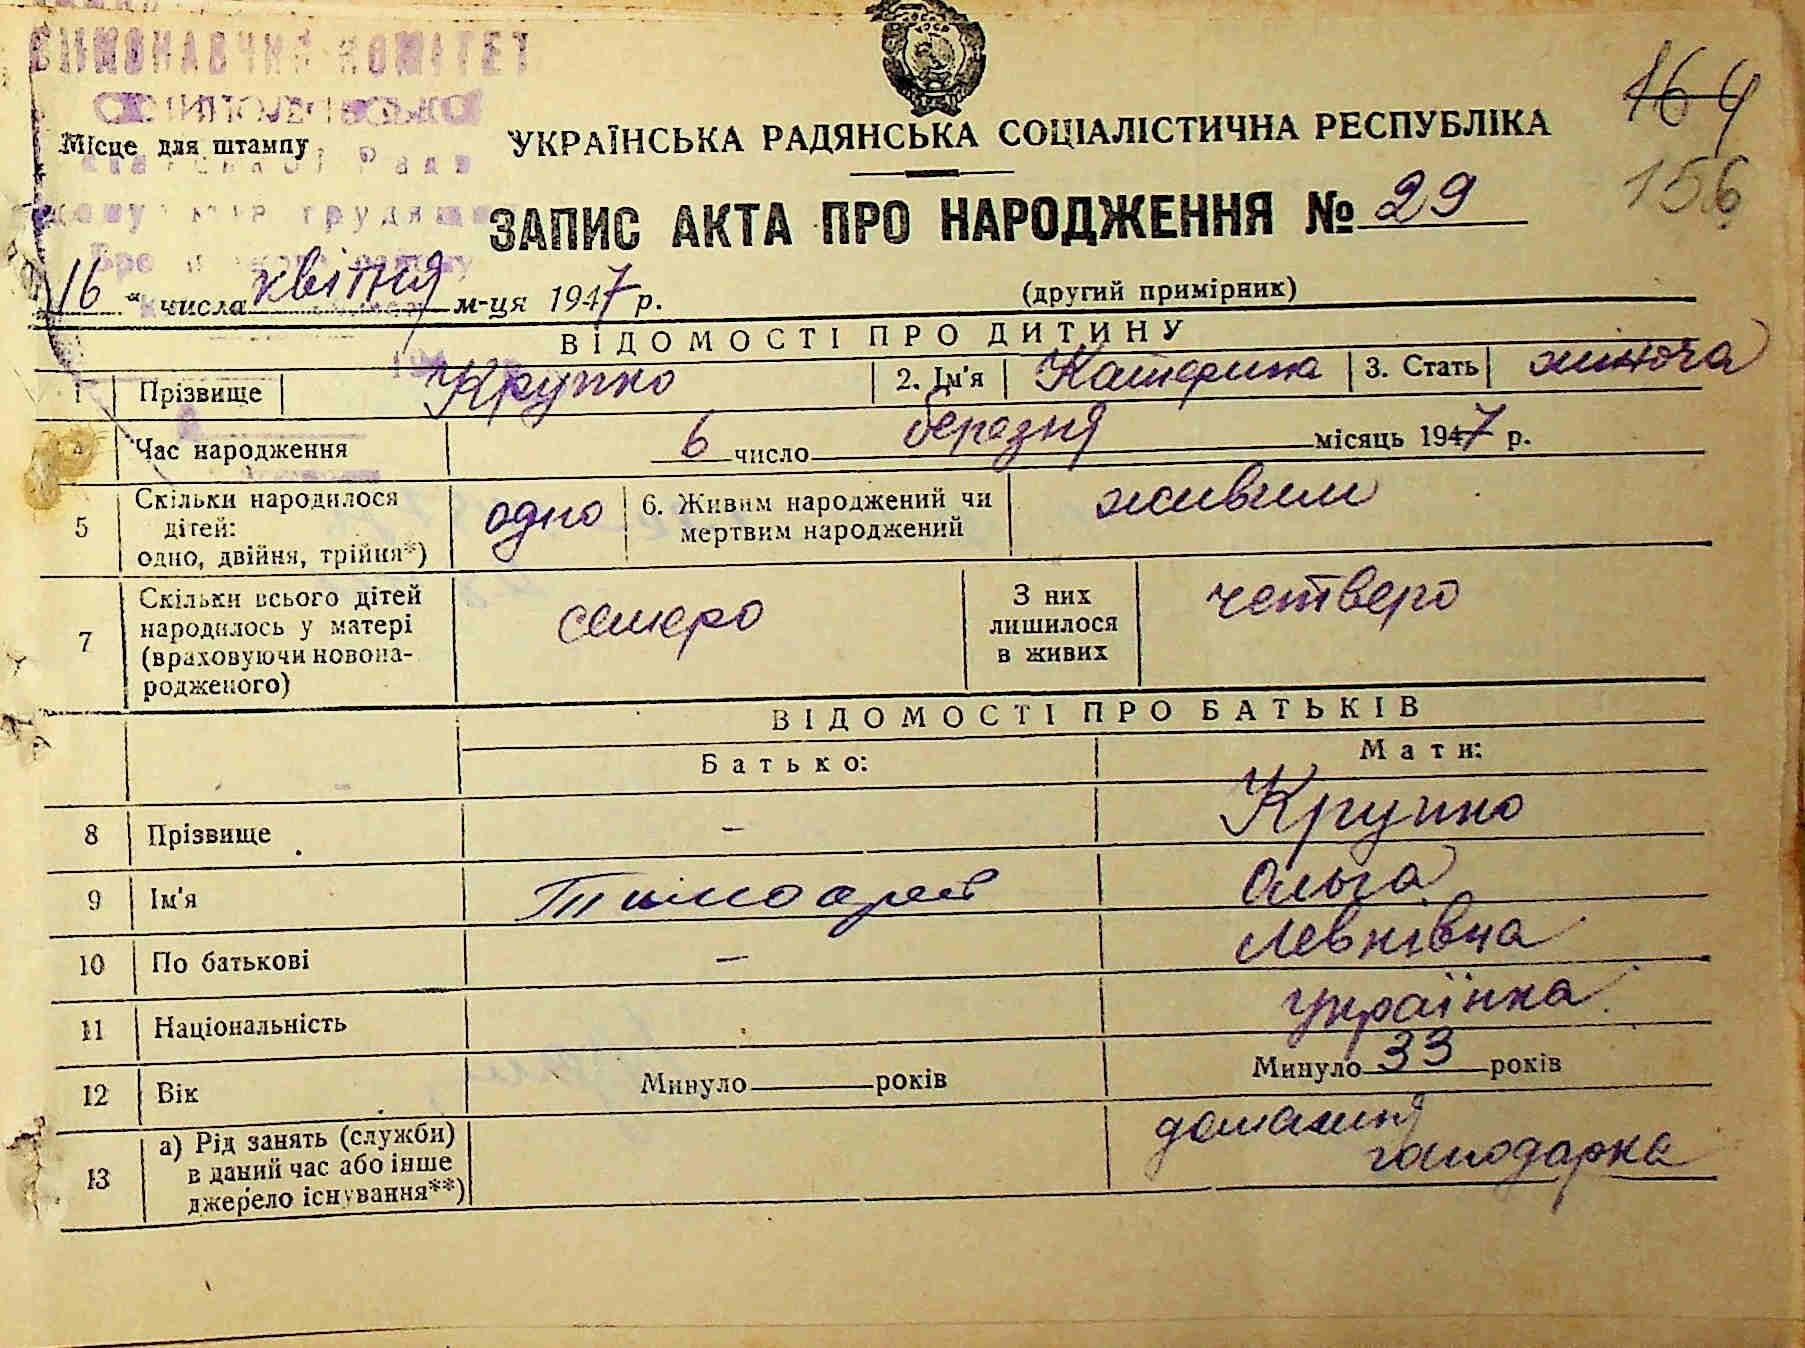 ВИКОНАВЧИЙ КОМІТЕТ
Місце для штампу
УКРАЇНСЬКА РАДЯНСЬКА СОЦІАЛІСТИЧНА РЕСПУБЛІКА
164
156
ЗАПИС АКТА ПРО НАРОДЖЕННЯ № 29
16 " числа квітня м-ця 1947 р.
(другий примірник)
ВІДОМОСТІ ПРО ДИТИНУ
1 Прізвище Крупко 2. Ім'я Катерина 3. Стать жиноча
4 Час народження 6 число березня місяць 1947 р.
5 Скільки народилося дітей: одно, двійня, трійня*) одно 6. Живим народжений чи мертвим народжений живим
7 Скільки всього дітей народилось у матері (враховуючи новонародженого) семеро З них лишилося в живих четверо
ВІДОМОСТІ ПРО БАТЬКІВ
Батько: Мати:
8 Прізвище — Крупко
9 Ім'я Тимофей Ольга
10 По батькові —
11 Національність українка
12 Вік Минуло років Минуло 33 років
13 а) Рід занять (служби) в даний час або інше джерело існування**) домашня господарка